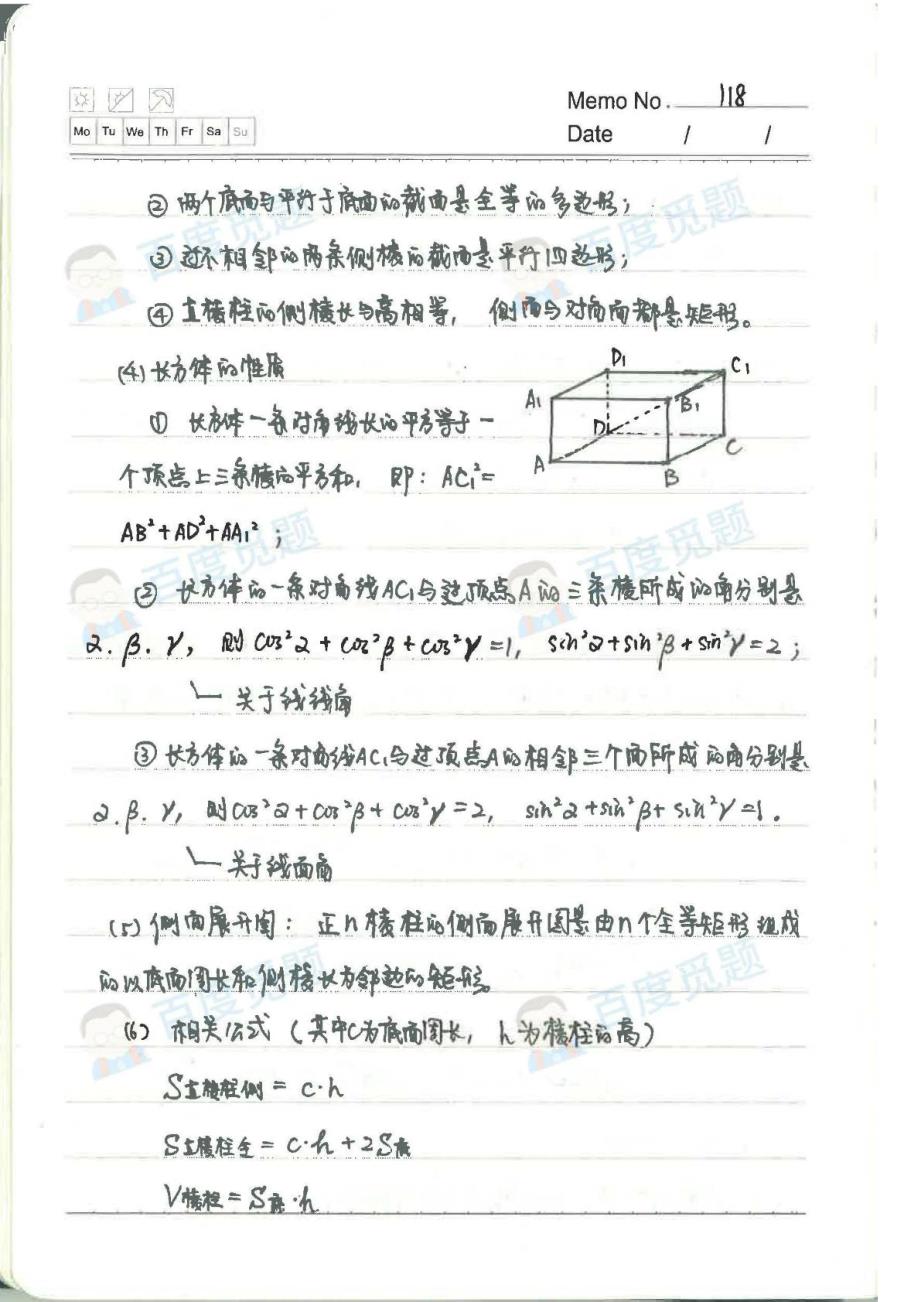 Memo No. 118
Mo Tu We Th Fr Sa Su
Date / /
② 两个底面与平行于底面的截面是全等的多边形；
③ 过不相邻的两条侧棱的截面是平行四边形；
④ 直棱柱的侧棱长与高相等，侧面与对角面都是矩形。
(4) 长方体的性质
① 长方体一条对角线长的平方等于一
个顶点上三条棱的平方和，即：AC₁²=
AB²+AD²+AA₁²；
D₁ C₁
A₁ B₁
D C
A B
② 长方体的一条对角线AC₁与过顶点A的三条棱所成的角分别是
α.β.γ，则cos²α+cos²β+cos²γ=1，sin²α+sin²β+sin²γ=2；
关于线线角
③ 长方体的一条对角线AC₁与过顶点A的相邻三个面所成的角分别是
α.β.γ，则cos²α+cos²β+cos²γ=2，sin²α+sin²β+sin²γ=1。
关于线面角
(5) 侧面展开图：正n棱柱的侧面展开图是由n个全等矩形组成
的以底面周长和侧棱长为邻边的矩形。
(6) 相关公式（其中C为底面周长，h为棱柱的高）
S直棱柱侧=c·h
S直棱柱全=c·h+2S底
V棱柱=S底·h
百度觅题
百度觅题
百度觅题
百度觅题
百度觅题
百度觅题